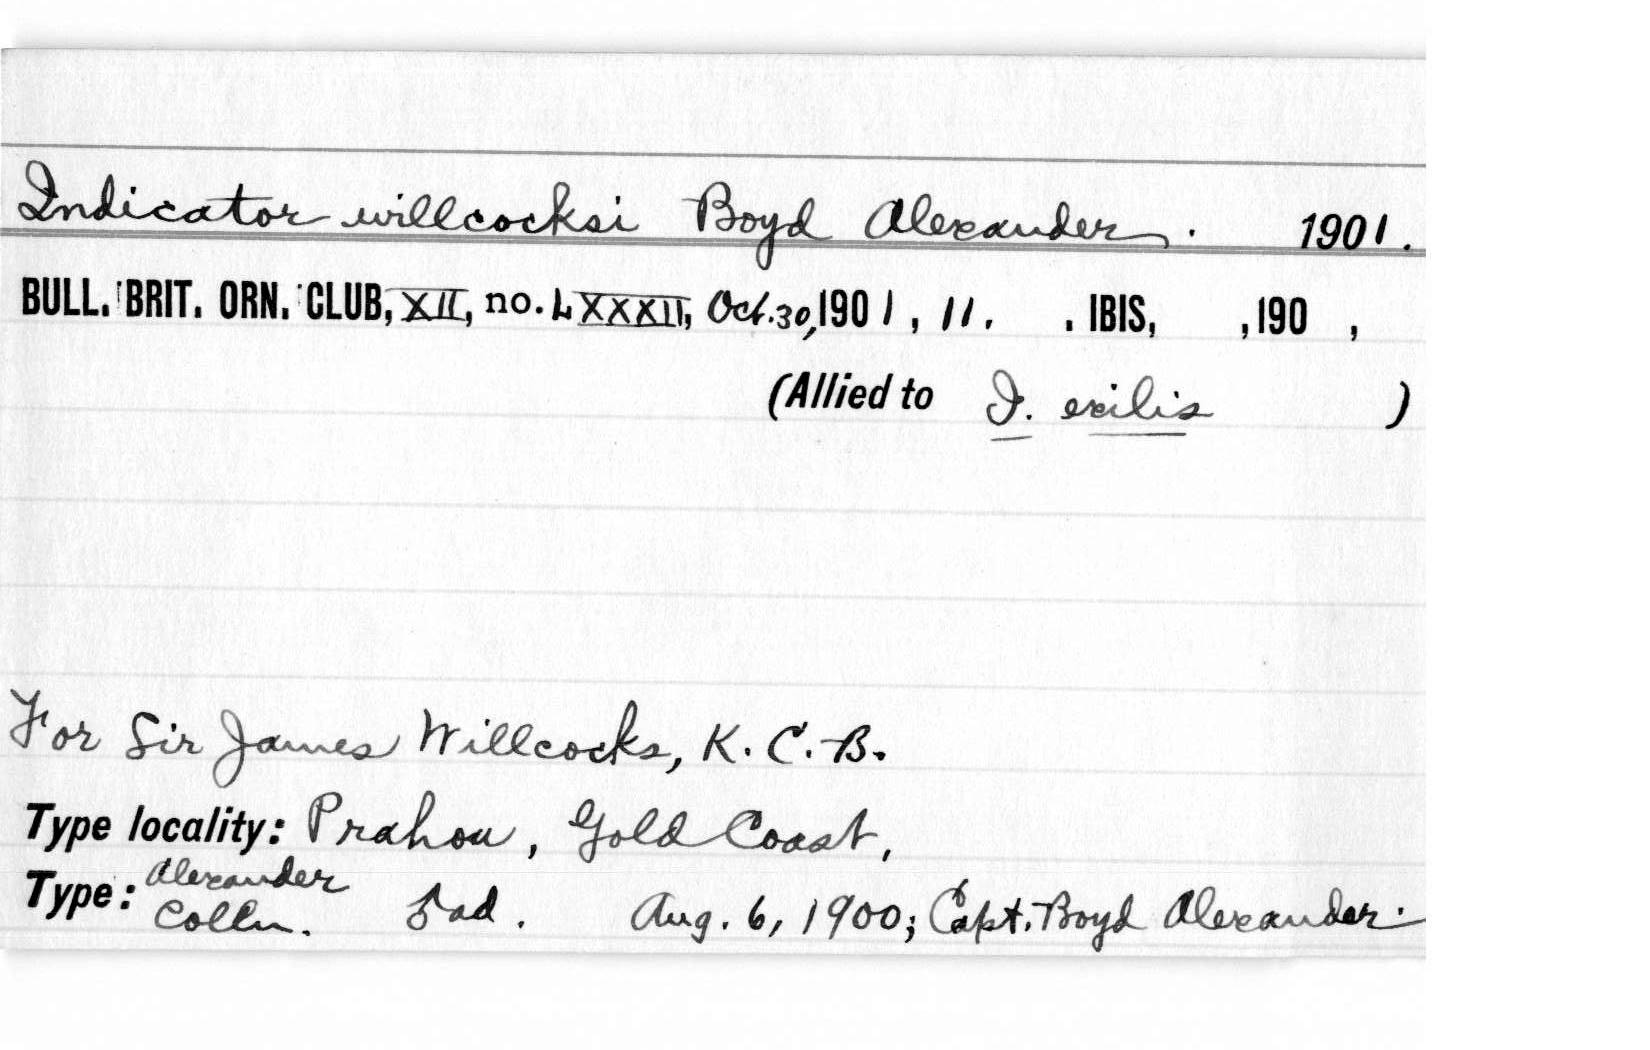 Indicator willcocksi Boyd Alexander. 1901.
BULL. BRIT. ORN. CLUB, XII, no. LXXXII, Oct. 30, 1901, 11. . IBIS, , 190 ,
(Allied to I. exilis )
For Sir James Willcocks, K. C. B.
Type locality: Prahou, Gold Coast,
Type: Alexander Colln. ad. Aug. 6, 1900; Capt. Boyd Alexander.